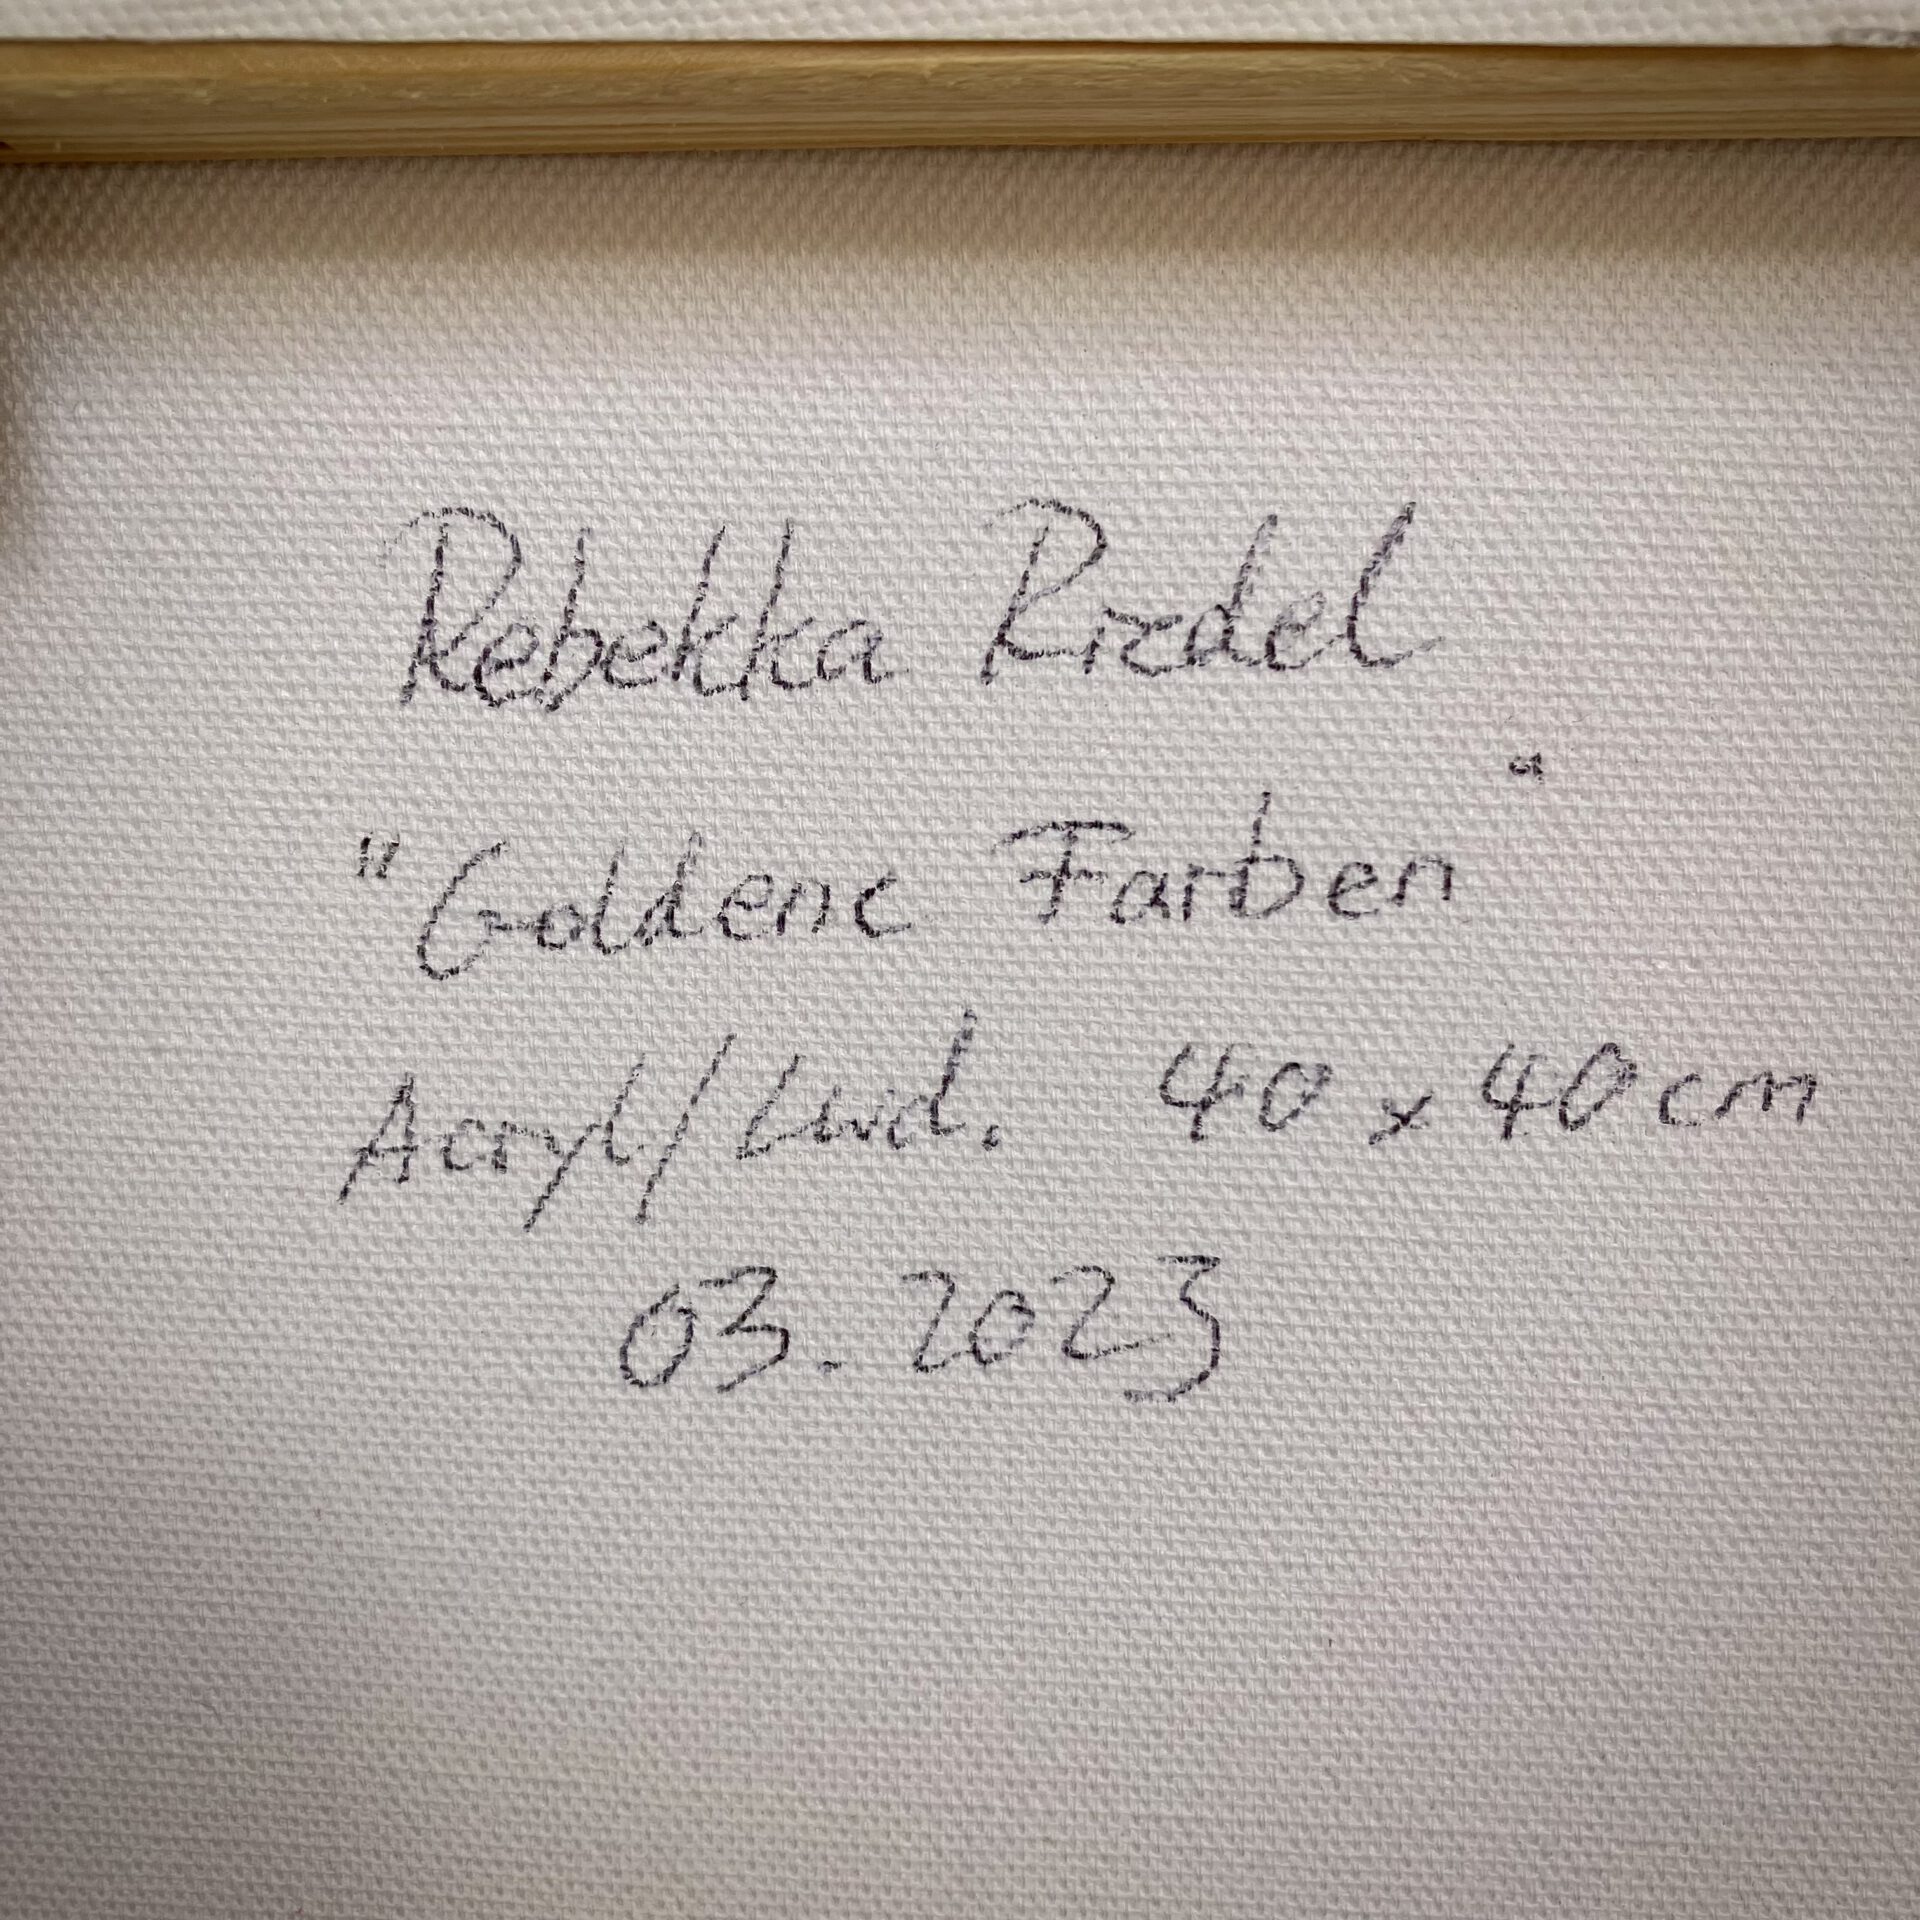 Rebekka Riedel
"Goldene Farben"
Acryl/Lwd. 40 x 40 cm
03.2023